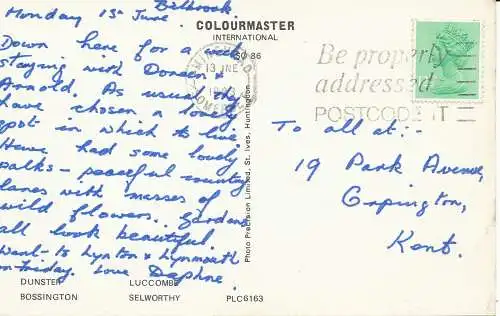 Bilbrook
Monday 13th June.
Down here for a week
staying with Doreen &
Arnold. As usual they
have chosen a lovely
spot in which to live.
Have had some lovely
walks - peaceful country
lanes with masses of
wild flowers. Gardens
all look beautiful.
Went to Lynton & Lynmouth
on Friday. Love Daphne.
DUNSTER LUCCOMBE
BOSSINGTON SELWORTHY PLC6163
COLOURMASTER
INTERNATIONAL
Photo Precision Limited, St. Ives, Huntingdon
MINEHEAD
13 JNE
SOMERSET
Be properly
addressed
POSTCODE IT
To all at:-
19 Park Avenue,
Orpington,
Kent.